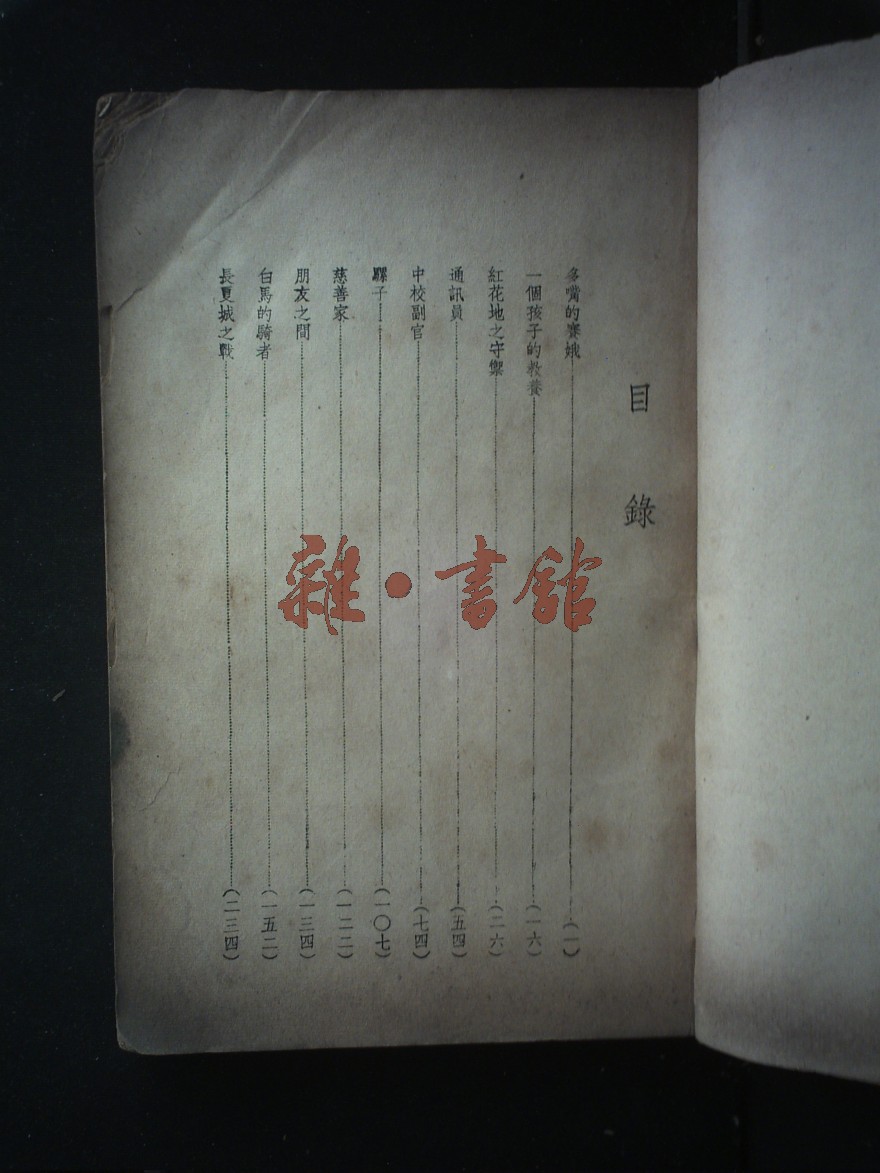 目錄
多嘴的賽娥……(一)
一個孩子的敎養……(一六)
紅花地之守禦……(二六)
通訊員……(五四)
中校副官……(七四)
騾子……(一〇七)
慈善家……(一二二)
朋友之間……(一三四)
白馬的騎者……(一五二)
長夏城之戰……(二三四)
雜·書館